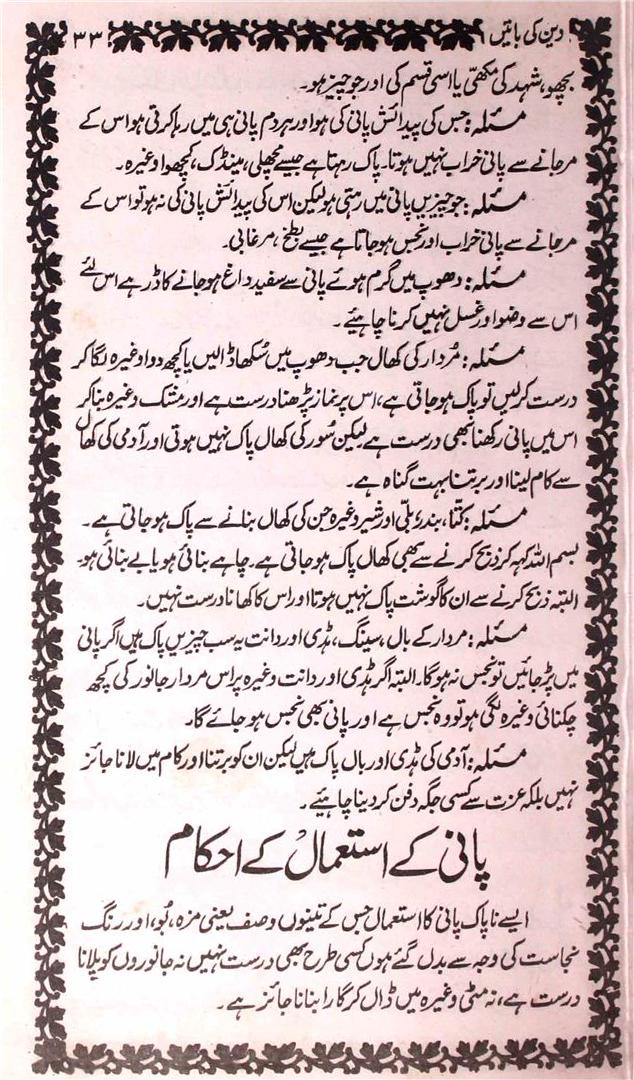 دین کی باتیں ۳۳
بچھو، شہد کی مکھی یا اسی قسم کی اور جو چیز ہو۔
مسئلہ: جس کی پیدائش پانی کی ہو اور ہر دم پانی ہی میں رہا کرتی ہو اس کے
مرجانے سے پانی خراب نہیں ہوتا۔ پاک رہتا ہے جیسے مچھلی، مینڈک، کچھوا وغیرہ۔
مسئلہ: جو چیزیں پانی میں رہتی ہو لیکن اس کی پیدائش پانی کی نہ ہو تو اس کے
مرجانے سے پانی خراب اور نجس ہوجاتا ہے جیسے بطخ، مرغابی۔
مسئلہ: دھوپ میں گرم ہوئے پانی سے سفید داغ ہوجانے کا ڈر ہے اس لئے
اس سے وضو اور غسل نہیں کرنا چاہیئے۔
مسئلہ: مُردار کی کھال جب دھوپ میں سُکھا ڈالیں یا کچھ دوا وغیرہ لگا کر
درست کرلیں تو پاک ہوجاتی ہے، اس پر نماز پڑھنا درست ہے اور مشک وغیرہ بناکر
اس میں پانی رکھنا بھی درست ہے لیکن سُور کی کھال پاک نہیں ہوتی اور آدمی کی کھال
سے کام لینا اور برتنا بہت گناہ ہے۔
مسئلہ: کتّا، بندر، بلّی اور شیر وغیرہ جن کی کھال بنانے سے پاک ہوجاتی ہے۔
بسم اللہ کہہ کر ذبح کرنے سے بھی کھال پاک ہوجاتی ہے۔ چاہے بنائی ہو یا بے بنائی ہو۔
البتہ ذبح کرنے سے ان کا گوشت پاک نہیں ہوتا اور اس کا کھانا درست نہیں۔
مسئلہ: مردار کے بال، سینگ، ہڈی اور دانت یہ سب چیزیں پاک ہیں اگر پانی
میں پڑجائیں تو نجس نہ ہوگا۔ البتہ اگر ہڈی اور دانت وغیرہ پر اس مردار جانور کی کچھ
چکنائی وغیرہ لگی ہو تو وہ نجس ہے اور پانی بھی نجس ہو جائے گا۔
مسئلہ: آدمی کی ہڈی اور بال پاک ہیں لیکن ان کو برتنا اور کام میں لانا جائز
نہیں بلکہ عزت سے کسی جگہ دفن کردینا چاہیئے۔
پانی کے استعمال کے احکام
ایسے ناپاک پانی کا استعمال جس کے تینوں وصف یعنی مزہ، بُو، اور رَنگ
نجاست کی وجہ سے بدل گئے ہوں کسی طرح بھی درست نہیں نہ جانوروں کو پلانا
درست ہے، نہ مٹی وغیرہ میں ڈال کر گارا بنانا جائز ہے۔